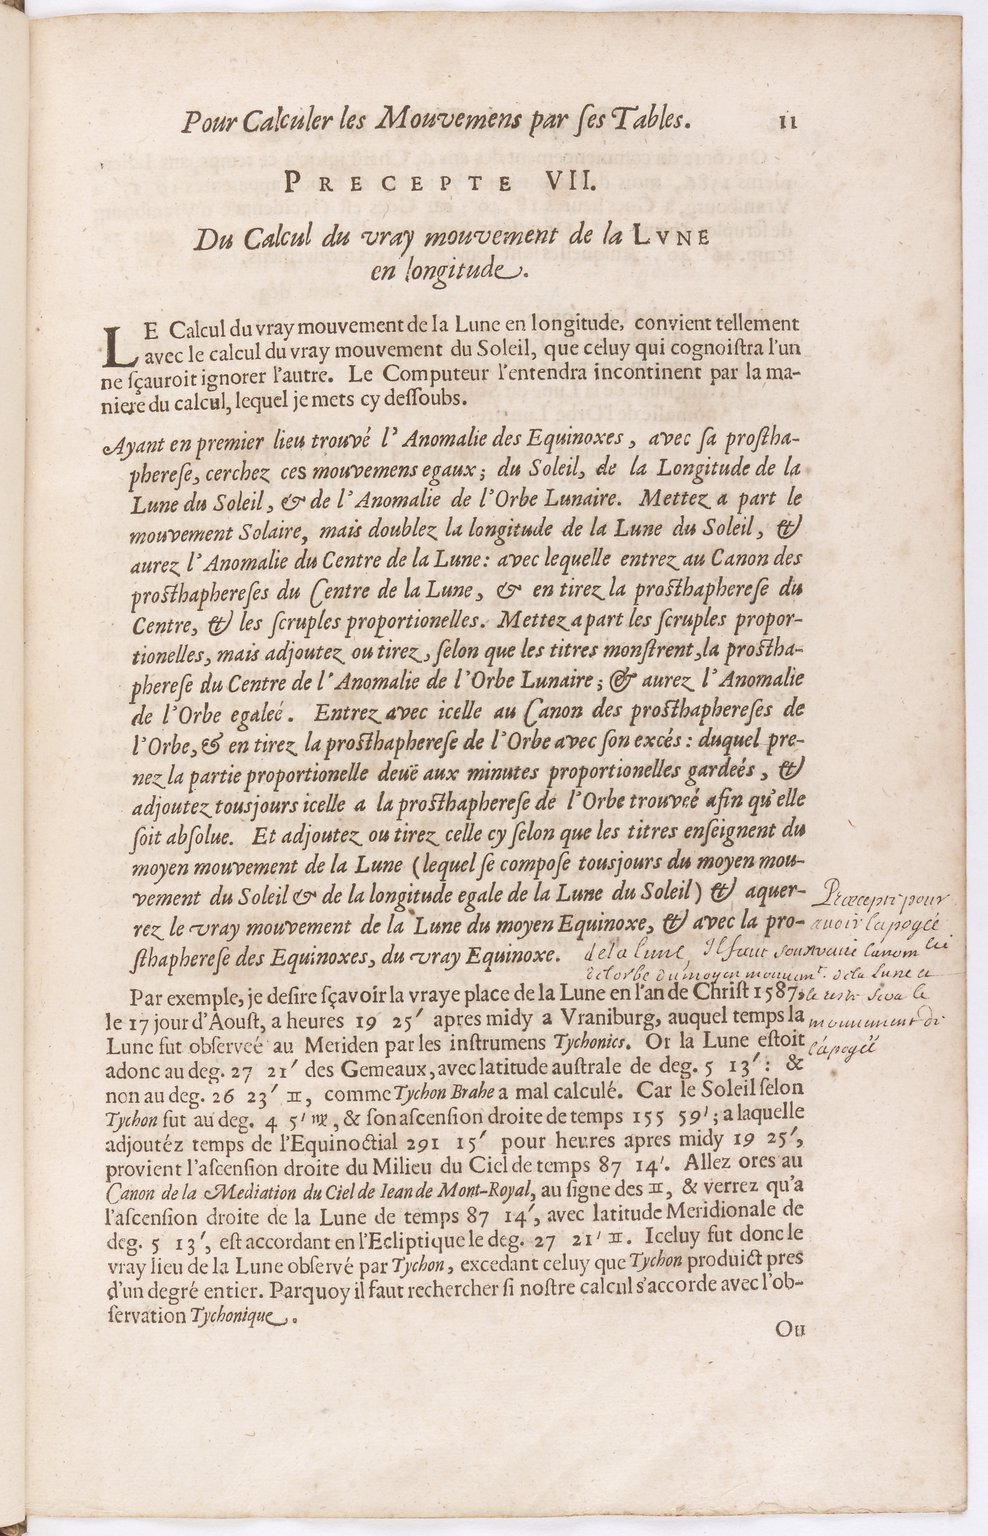 Pour Calculer les Mouvemens par ſes Tables. 11
PRECEPTE VII.
Du Calcul du vray mouvement de la LVNE
en longitude.
LE Calcul du vray mouvement de la Lune en longitude, convient tellement
avec le calcul du vray mouvement du Soleil, que celuy qui cognoiſtra l'un
ne ſçauroit ignorer l'autre. Le Computeur l'entendra incontinent par la ma-
niere du calcul, lequel je mets cy deſſoubs.
Ayant en premier lieu trouvé l'Anomalie des Equinoxes, avec ſa proſtha-
phereſe, cerchez ces mouvemens egaux; du Soleil, de la Longitude de la
Lune du Soleil, & de l'Anomalie de l'Orbe Lunaire. Mettez a part le
mouvement Solaire, mais doublez la longitude de la Lune du Soleil, &
aurez l'Anomalie du Centre de la Lune: avec lequelle entrez au Canon des
proſthaphereſes du Centre de la Lune, & en tirez la proſthaphereſe du
Centre, & les ſcruples proportionelles. Mettez apart les ſcruples propor-
tionelles, mais adjoutez ou tirez, ſelon que les titres monſtrent, la proſtha-
phereſe du Centre de l'Anomalie de l'Orbe Lunaire; & aurez l'Anomalie
de l'Orbe egaleé. Entrez avec icelle au Canon des proſthaphereſes de
l'Orbe, & en tirez la proſthaphereſe de l'Orbe avec ſon excés: duquel pre-
nez la partie proportionelle deuë aux minutes proportionelles gardeés, &
adjoutez tousjours icelle a la proſthaphereſe de l'Orbe trouveé afin qu'elle
ſoit abſolue. Et adjoutez ou tirez celle cy ſelon que les titres enſeignent du
moyen mouvement de la Lune (lequel ſe compoſe tousjours du moyen mou-
vement du Soleil & de la longitude egale de la Lune du Soleil) & aquer-
rez le vray mouvement de la Lune du moyen Equinoxe, & avec la pro-
ſthaphereſe des Equinoxes, du vray Equinoxe.
Præcept pour
avoir l'apogée
de la lune, Il faut soustraire l'anom
de l'orbe du moyen mouvemt. de la Lune
le reste sera le
mouvement de
l'apogée
Par exemple, je deſire ſçavoir la vraye place de la Lune en l'an de Chriſt 1587,
le 17 jour d'Aouſt, a heures 19 25′ apres midy a Vraniburg, auquel temps la
Lune fut obſerveé au Meriden par les inſtrumens Tychonics. Or la Lune eſtoit
adonc au deg. 27 21′ des Gemeaux, avec latitude auſtrale de deg. 5 13′: &
non au deg. 26 23′ ♊, comme Tychon Brahe a mal calculé. Car le Soleil ſelon
Tychon fut au deg. 4 5′ ♍, & ſon aſcenſion droite de temps 155 59′; a laquelle
adjoutéz temps de l'Equinoctial 291 15′ pour heures apres midy 19 25′,
provient l'aſcenſion droite du Milieu du Ciel de temps 87 14′. Allez ores au
Canon de la Mediation du Ciel de Iean de Mont-Royal, au ſigne des ♊, & verrez qu'a
l'aſcenſion droite de la Lune de temps 87 14′, avec latitude Meridionale de
deg. 5 13′, eſt accordant en l'Ecliptique le deg. 27 21′ ♊. Iceluy fut donc le
vray lieu de la Lune obſervé par Tychon, excedant celuy que Tychon produict pres
d'un degré entier. Parquoy il faut rechercher ſi noſtre calcul s'accorde avec l'ob-
ſervation Tychonique.
Ou